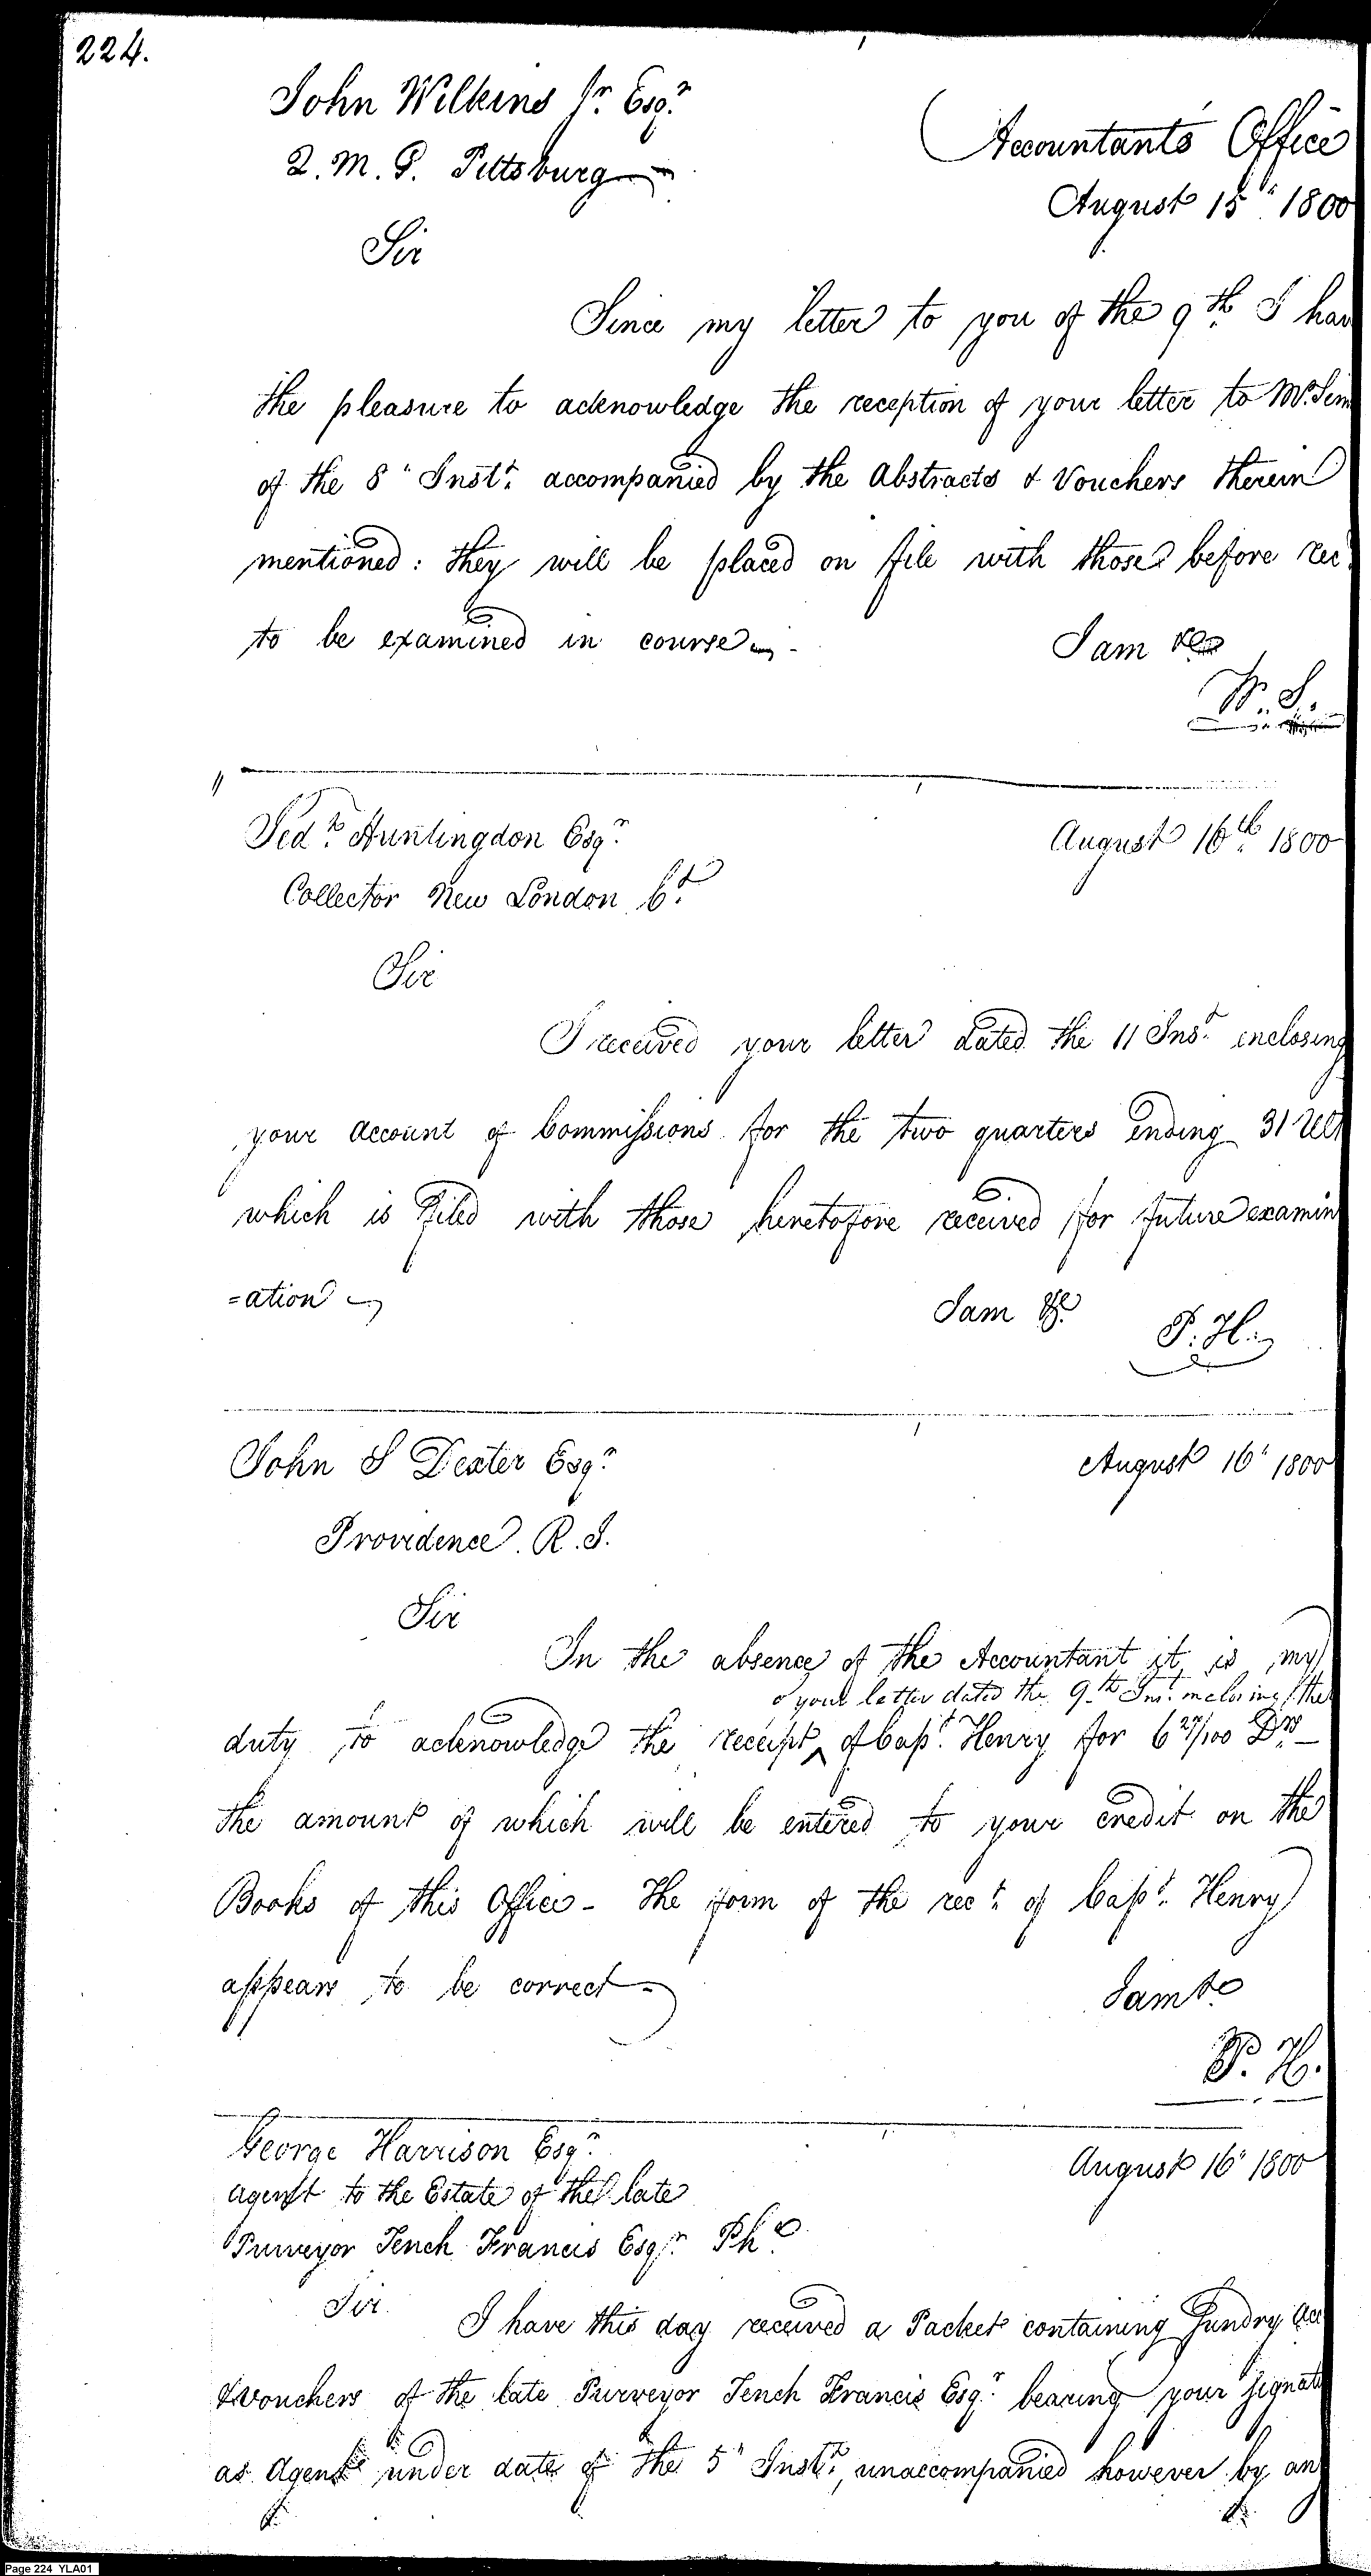 224.
John Wilkins Jr. Esqr.
Q. M. G. Pittsburg
Accountants Office
August 15" 1800
Sir
Since my letter to you of the 9th. I hav
the pleasure to acknowledge the reception of your letter to Mr. Sim
of the 8" Instt. accompanied by the Abstracts & Vouchers therein
mentioned: they will be placed on file with those before rec
to be examined in course -
I am &c
W. S.
Jedh. Huntingdon Esqr.
August 16th. 1800
Collector New London Ct.
Sir
I received your letter dated the 11 Inst. enclosing
your account of Commissions for the two quarters ending 31 Ult
which is filed with those heretofore received for future examin
=ation
I am &c.
P. H.
John S Dexter Esqr.
August 16" 1800
Providence. R. I.
Sir
In the absence of the Accountant it is my
of your letter dated the 9th Inst. inclosing the
duty to acknowledge the receipt ^ of Capt. Henry for 6 27/100 Drs
the amount of which will be entered to your credit on the
Books of this Office - The form of the rect. of Capt. Henry
appears to be correct -
I am &c
P. H.
George Harrison Esqr.
August 16" 1800
Agent to the Estate of the late
Purveyor Tench Francis Esqr. Pha.
Sir. I have this day received a Packet containing Sundry Acc
& Vouchers of the late Purveyor Tench Francis Esqr. bearing your signat
as Agent under date of the 5" Instt., unaccompanied however by an
Page 224 YLA01